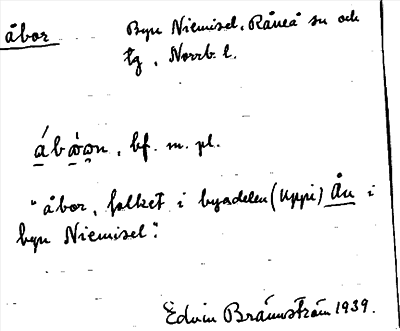 åbor
Byn Niemisel, Råneå sn och
tg, Norrb. l.
bf. m. pl.
"åbor, folket i byadelen (Uppi) Ån i
byn Niemisel".
Edvin Brännström 1939.